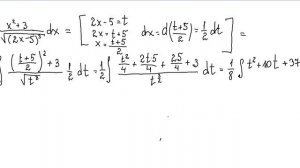 x²+3 / √(2x-5)³ dx = [ 2x-5=t 2x=t+5 x=t+5/2 dx=d(t+5/2)=1/2 dt ] =
∫ (t+5/2)²+3 / √t³ 1/2 dt = 1/2 ∫ t²/4 + 2t5/4 + 25/4 + 3 / t^3/2 dt = 1/8 ∫ t²+10t+37